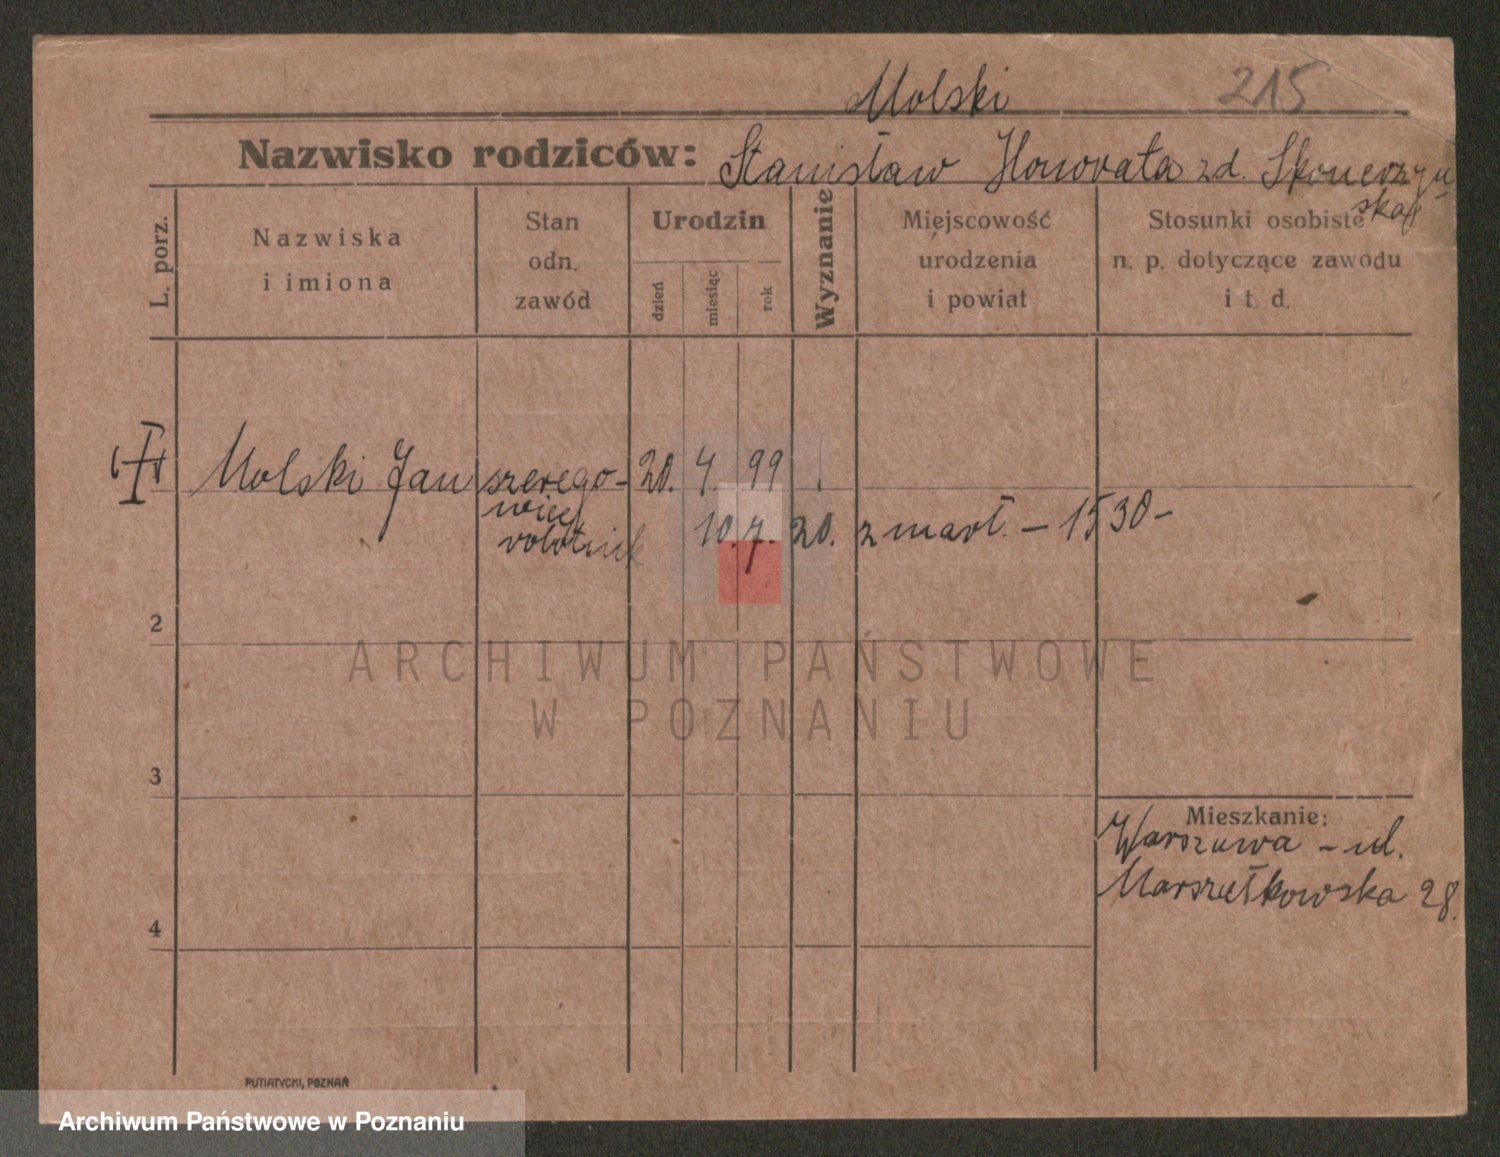 215
Molski
Nazwisko rodziców: Stanisław Honorata zd. Skonerzyń-
ska
L. porz.
Nazwiska
i imiona
Stan
odn.
zawód
Urodzin
dzień
miesiąc
rok
Wyznanie
Miejscowość
urodzenia
i powiat
Stosunki osobiste
n. p. dotyczące zawodu
i t. d.
Molski Jan szerego- 20. 4 99
wiec
robotnik 10. 7. 20. zmarł. - 1530-
2
3
4
Mieszkanie:
Warszawa - ul.
Marszałkowska 28.
ARCHIWUM PAŃSTWOWE
W POZNANIU
PUTIATYCKI, POZNAŃ
Archiwum Państwowe w Poznaniu